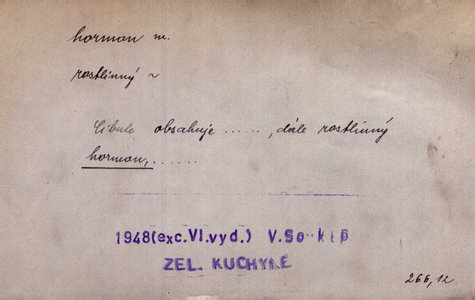 hormon m.
rostlinný ~
Cibule obsahuje ......, dále rostlinný
hormon, ......
1948(exc. VI. vyd.) V.
ZEL. KUCHYNĚ
266,12